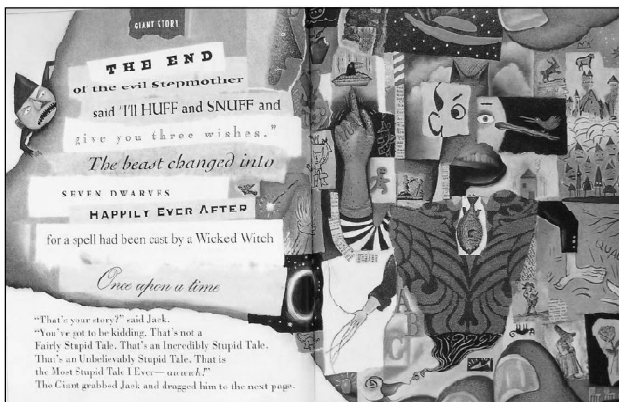 GIANT STORY
THE END
of the evil Stepmother
said "I'll HUFF and SNUFF and
give you three wishes."
The beast changed into
SEVEN DWARVES
HAPPILY EVER AFTER
for a spell had been cast by a Wicked Witch
Once upon a time
"That's your story?" said Jack.
"You've got to be kidding. That's not a
Fairly Stupid Tale. That's an Incredibly Stupid Tale.
That's an Unbelievably Stupid Tale. That is
the Most Stupid Tale I Ever—
The Giant grabbed Jack and dragged him to the next page.
A
B
C